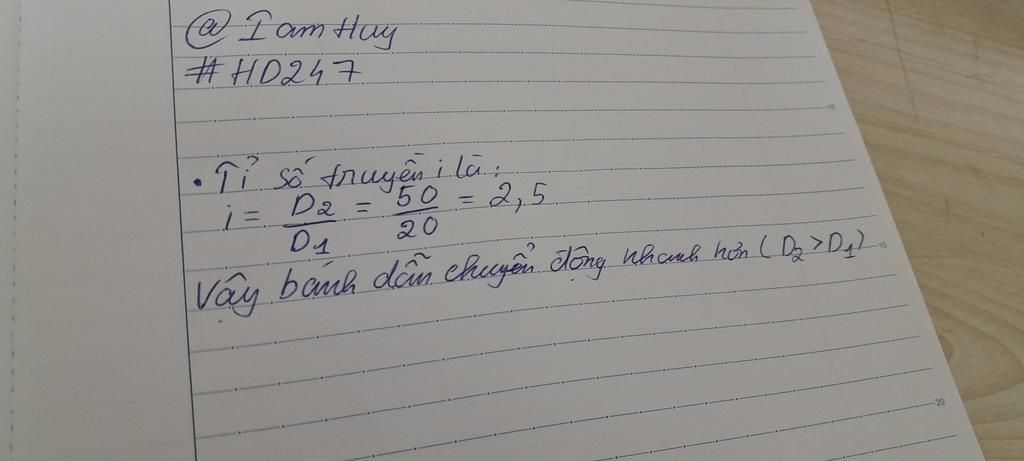 @ I am Huy
#HD247
10
• Tỉ số truyền i là:
i = D2/D1 = 50/20 = 2,5
15
Vậy bánh dẫn chuyển động nhanh hơn (D2>D1)
20